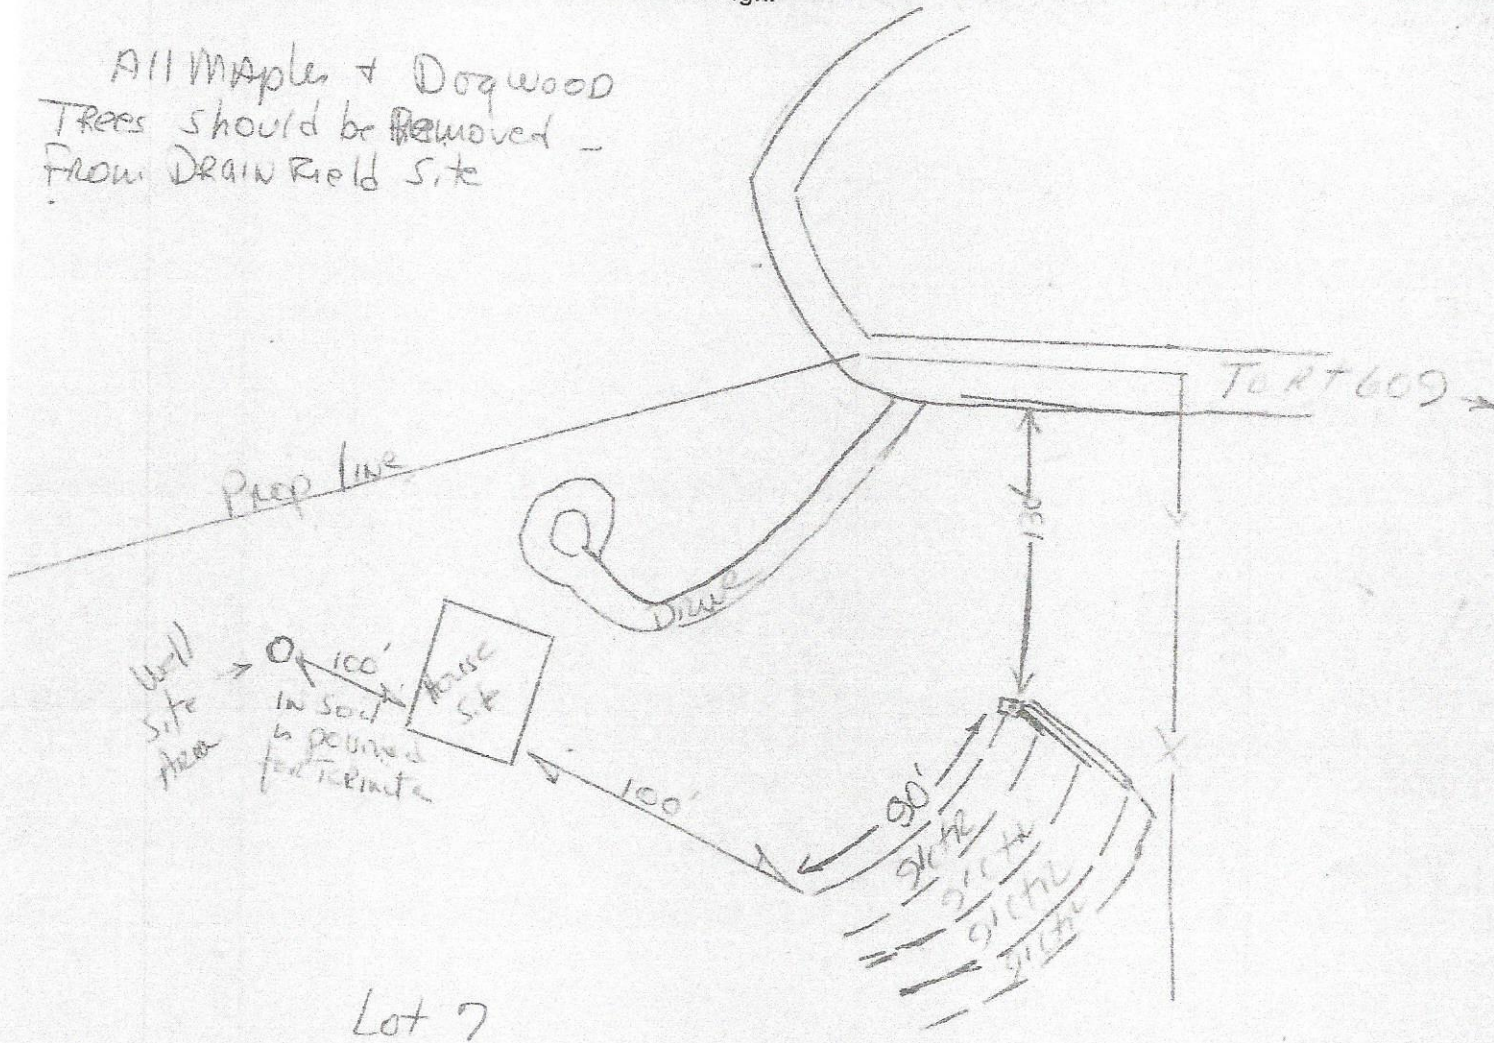 All Maples + Dogwood
Trees should be Removed -
From DRAIN Field Site
To Rt 609
Prop line
130'
Drive
Well
Site
Area
100'
House
Site
IN Soil
is poisoned
for Termites
100'
90'
9' ctr
9' ctr
9' ctr
9' ctr
X
Lot 7